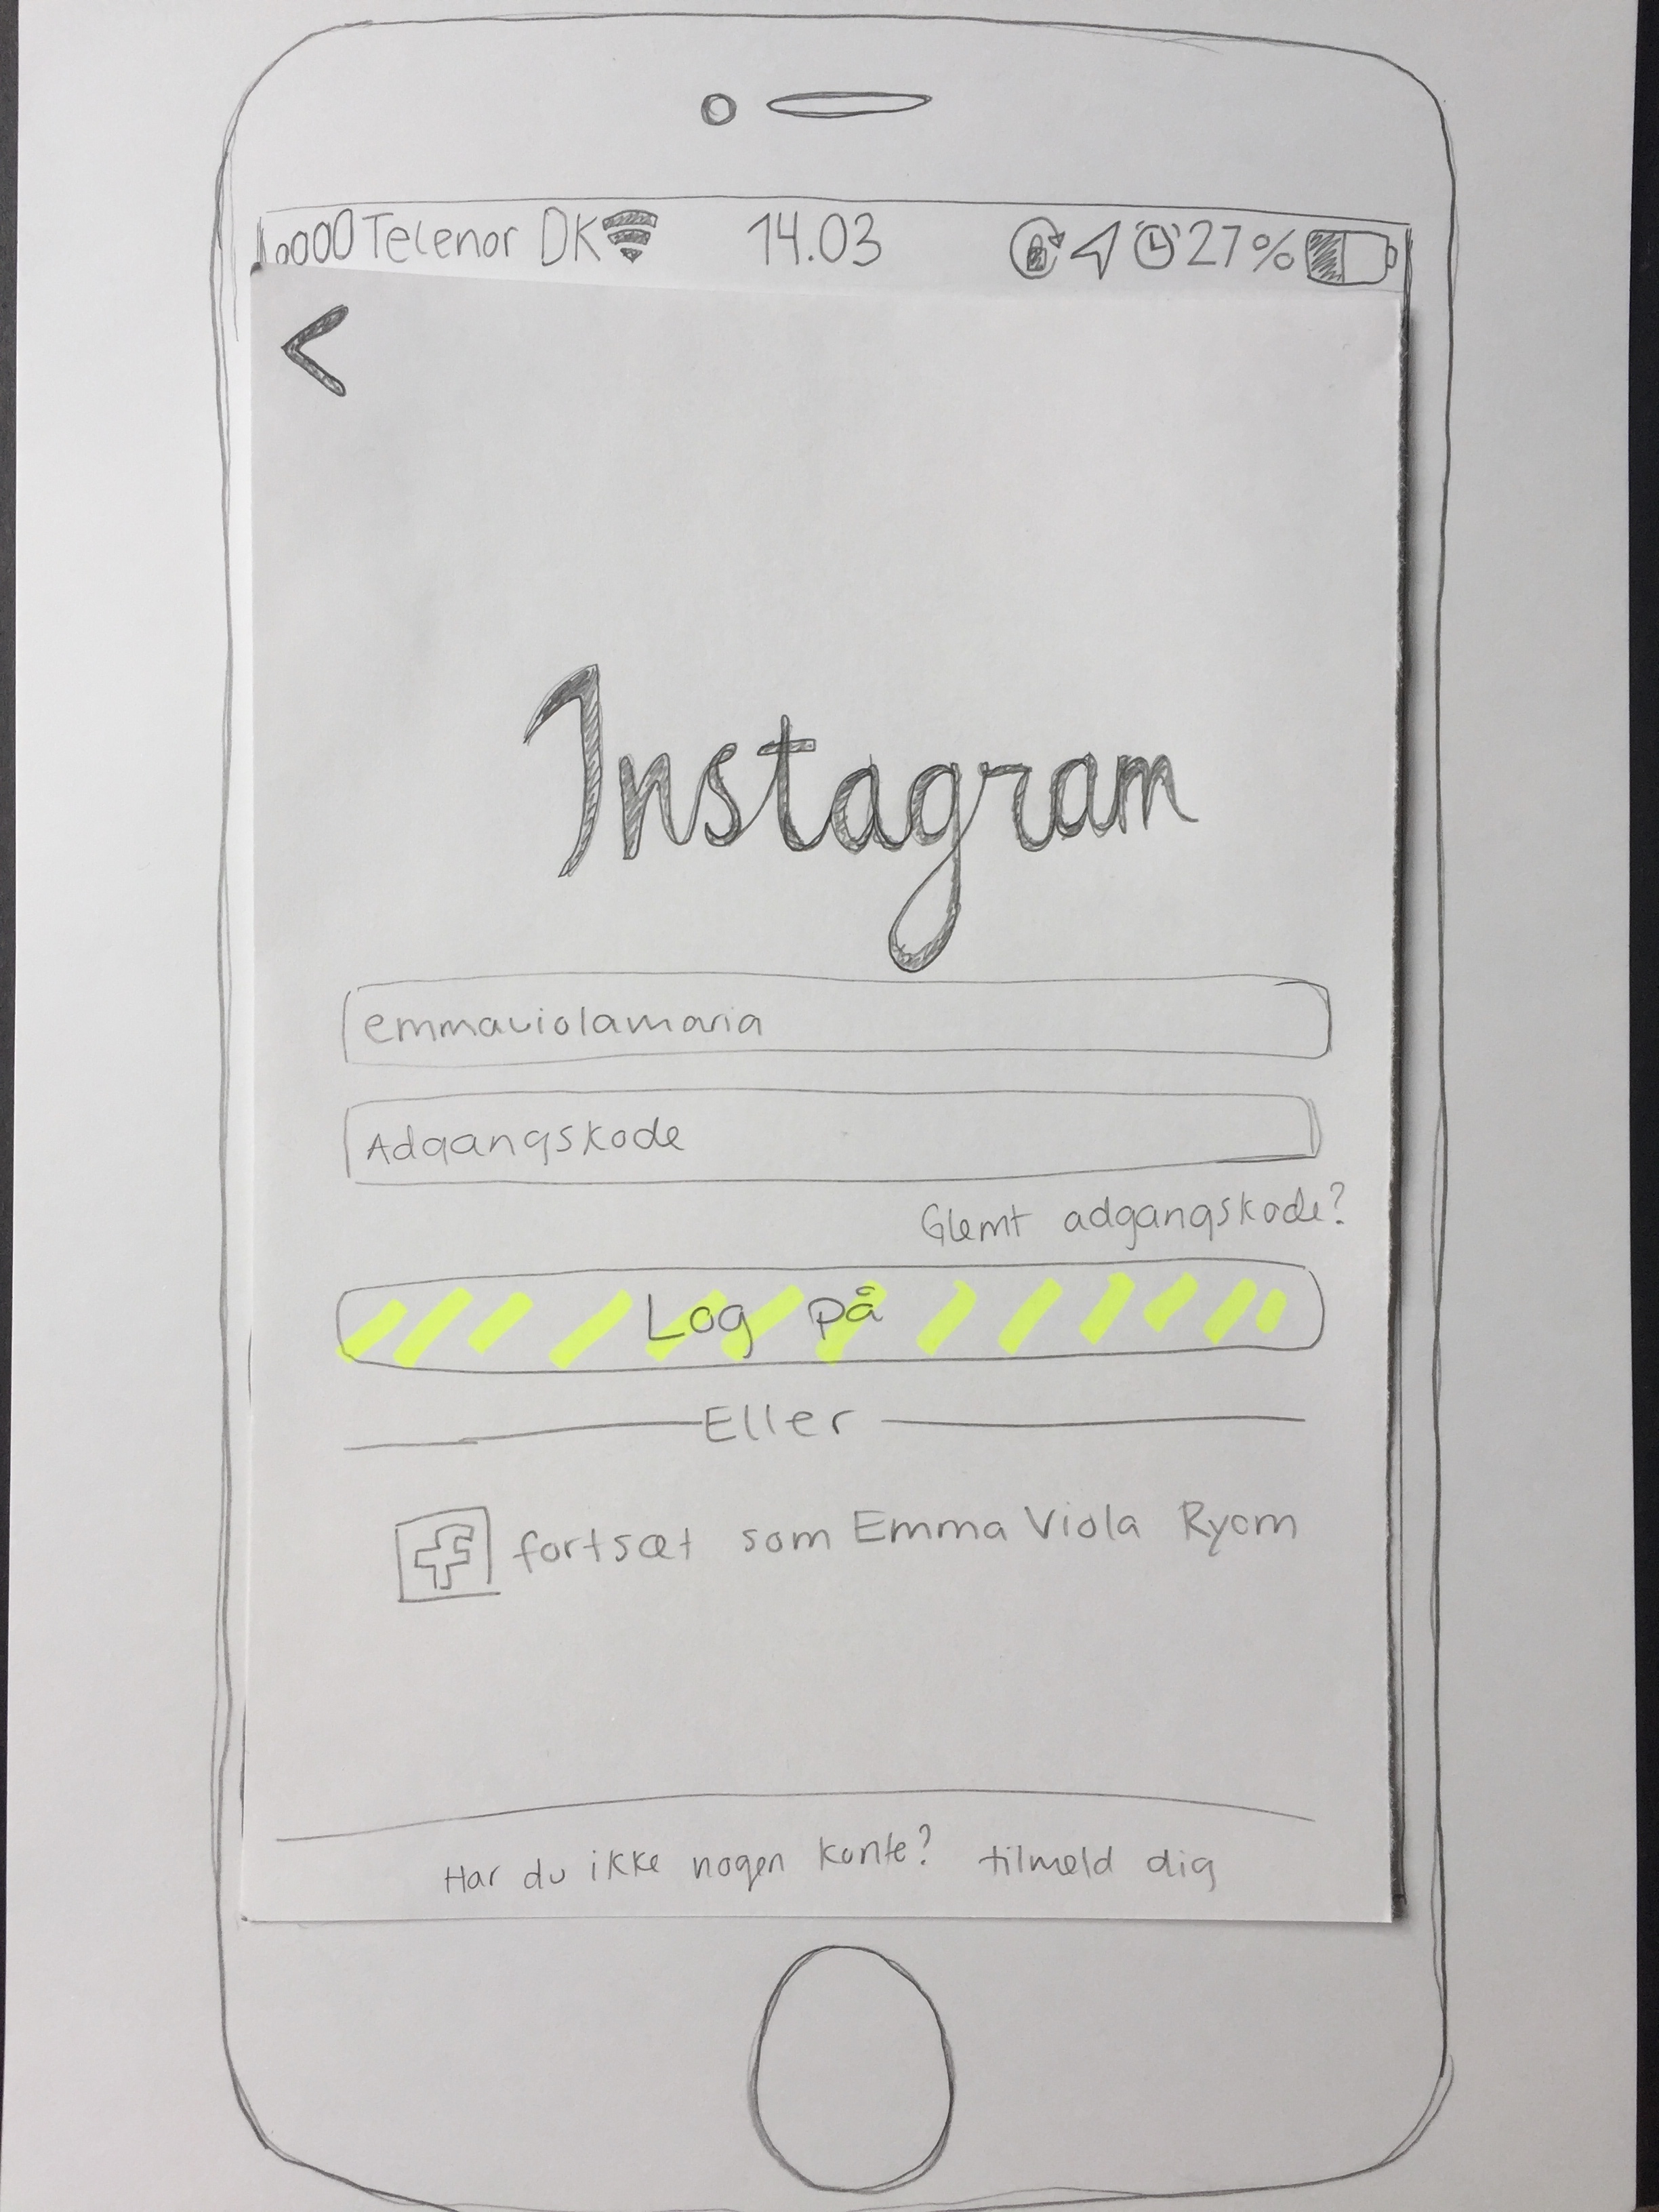 Telenor DK 14.03 27%
Instagram
emmaviolamaria
Adgangskode
Glemt adgangskode?
Log på
Eller
fortsæt som Emma Viola Ryom
Har du ikke nogen konto? tilmeld dig